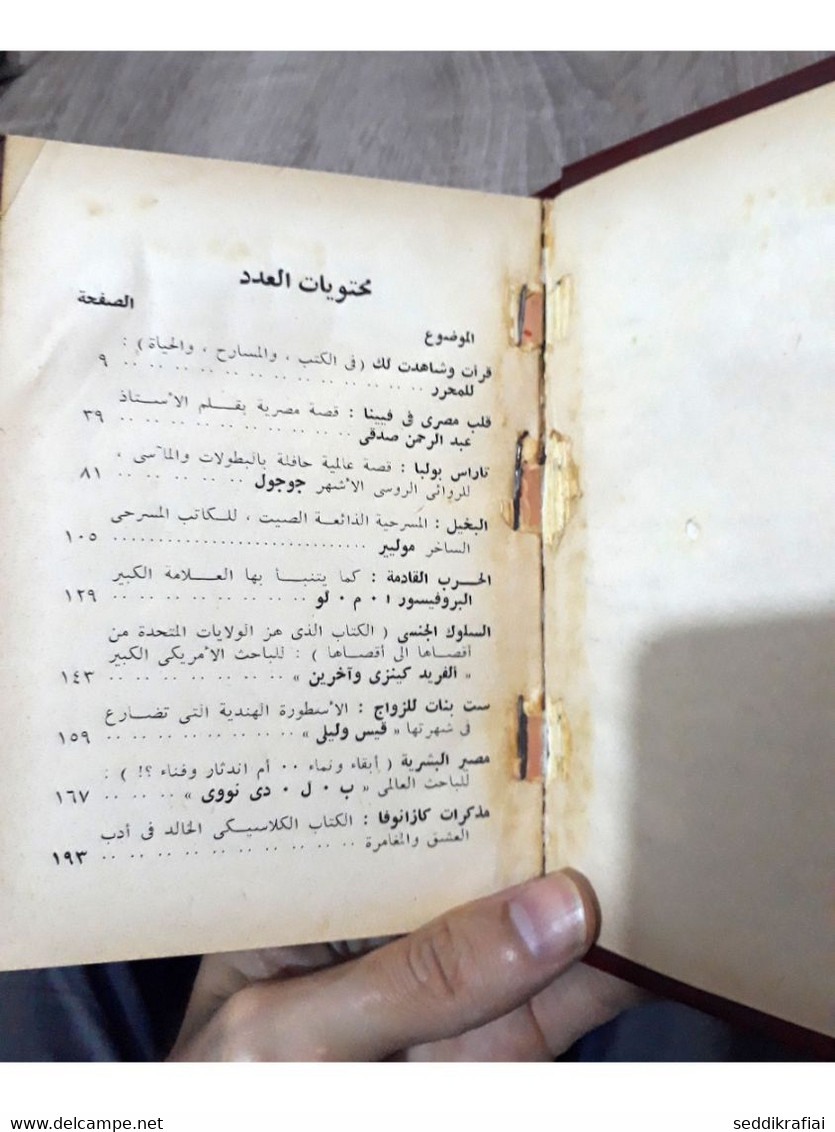 محتويات العدد
الموضوع الصفحة
قرأت وشاهدت لك ( فى الكتب ، والمسارح ، والحياة ) :
للمحرر .. .. .. .. .. .. .. .. .. .. .. .. ٩
قلب مصرى فى فيينا : قصة مصرية بقلم الأستاذ
عبد الرحمن صدقى .. .. .. .. .. .. .. .. .. ٣٩
تاراس بولبا : قصة عالمية حافلة بالبطولات والمآسى ،
للروائى الروسى الأشهر جوجول .. .. .. .. .. ٨١
البخيل : المسرحية الذائعة الصيت ، للكاتب المسرحى
الساخر موليير .............................. ١٠٥
الحرب القادمة : كما يتنبأ بها العلامة الكبير
البروفيسور ا ٠ م ٠ لو .. .. .. .. .. .. .. .. ١٢٩
السلوك الجنسى ( الكتاب الذى هز الولايات المتحدة من
أقصاها الى أقصاها ) : للباحث الأمريكى الكبير
« الفريد كينزى وآخرين » .. .. .. .. .. .. .. ١٤٣
ست بنات للزواج : الأسطورة الهندية التى تضارع
فى شهرتها « قيس وليلى » .. .. .. .. .. .. .. .. ١٥٩
مصير البشرية ( أبقاء ونماء ٠٠ أم اندثار وفناء ؟! ) :
للباحث العالمى « ب ٠ ل ٠ دى نووى » .. .. .. .. ١٦٧
مذكرات كازانوفا : الكتاب الكلاسيكى الخالد فى أدب
العشق والمغامرة .. .. .. .. .. .. .. .. .. .. ١٩٣
www.delcampe.net seddikrafiai